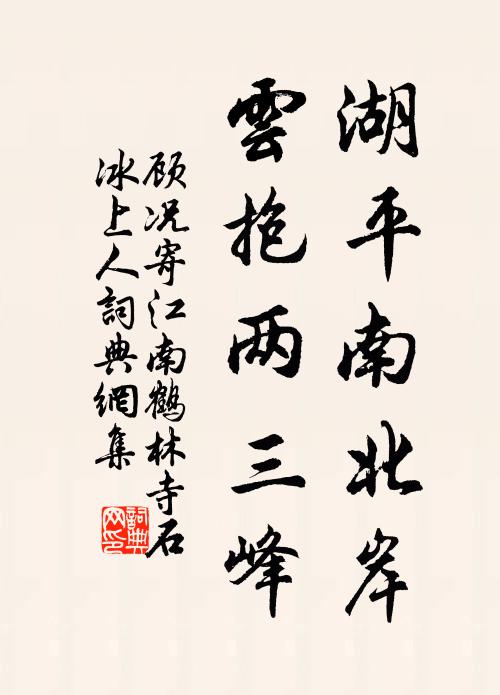 湖平南北岸
雲抱两三峰
顾况寄江南鶴林寺石
冰上人詞典網集
詞典
网印